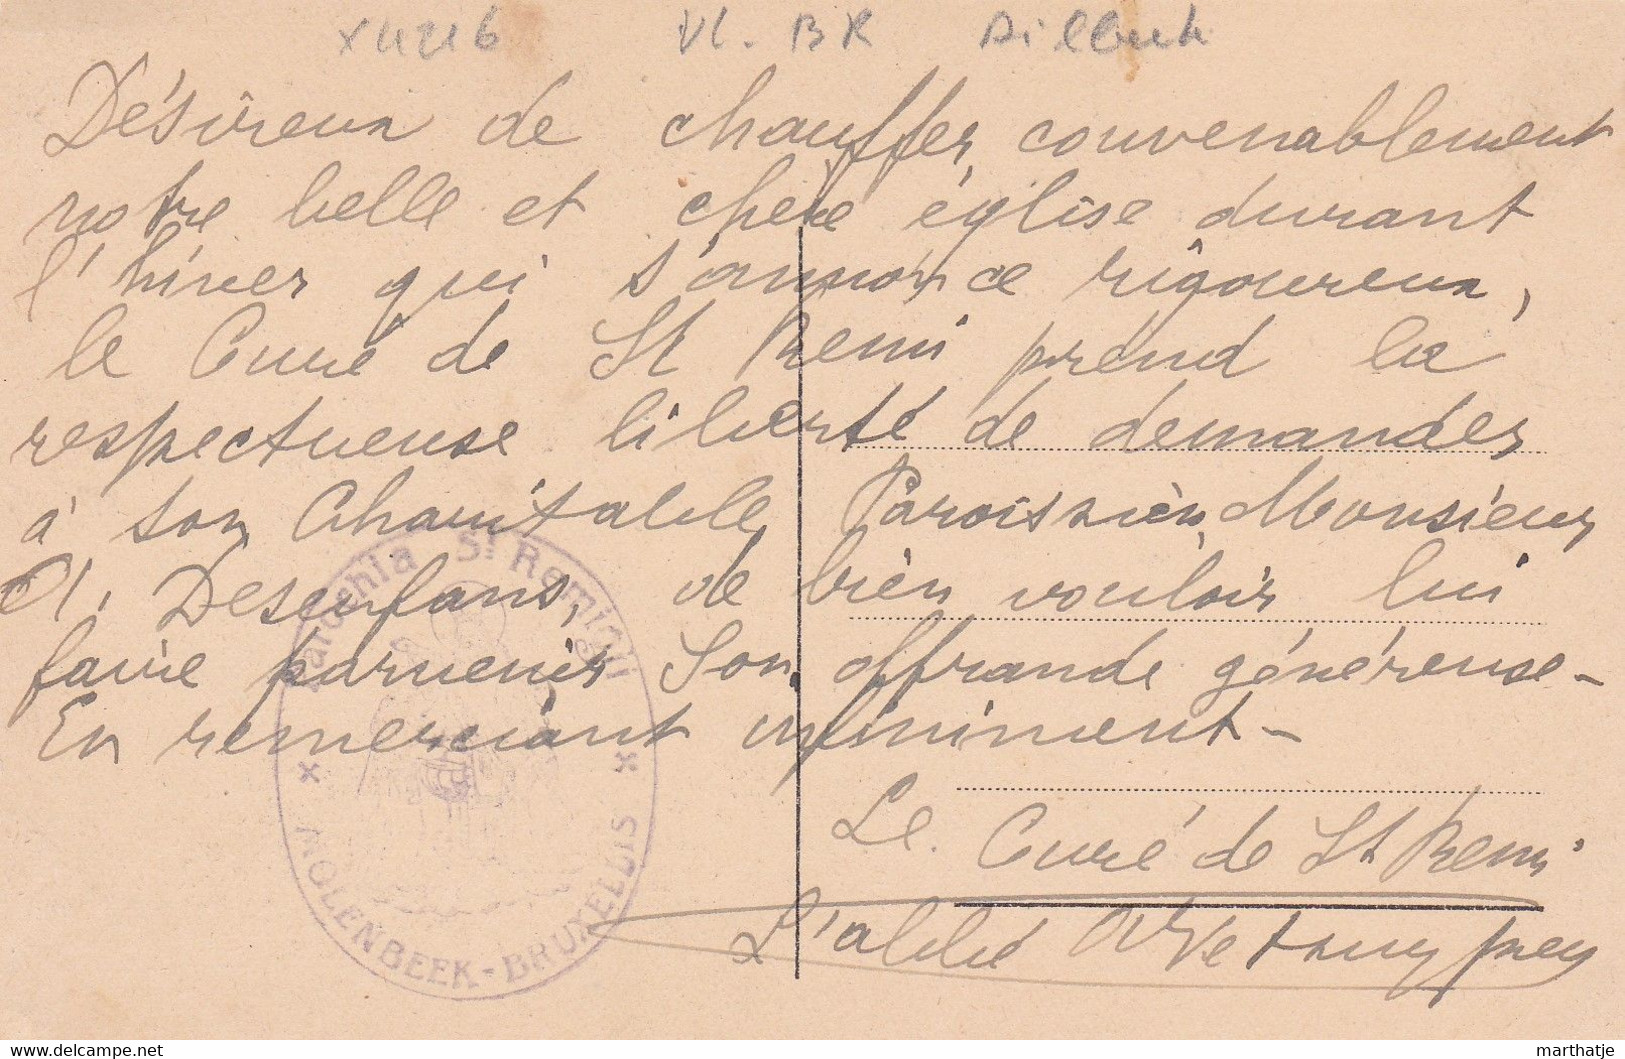 XU216 Vl. BR Dilbeek
Désireux de chauffer convenablement
notre belle et chère église durant
l'hiver qui s'annonce rigoureux,
le Curé de St Remi prend la
respectueuse liberté de demander
à son Charitable Paroissien, Monsieur
Desenfans, de bien vouloir lui
faire parvenir son offrande généreuse -
En remerciant infiniment -
Le Curé de St Remi
L'abbé
Parochia St Remigii
MOLENBEEK-BRUXELLIS
www.delcampe.net
marthatje